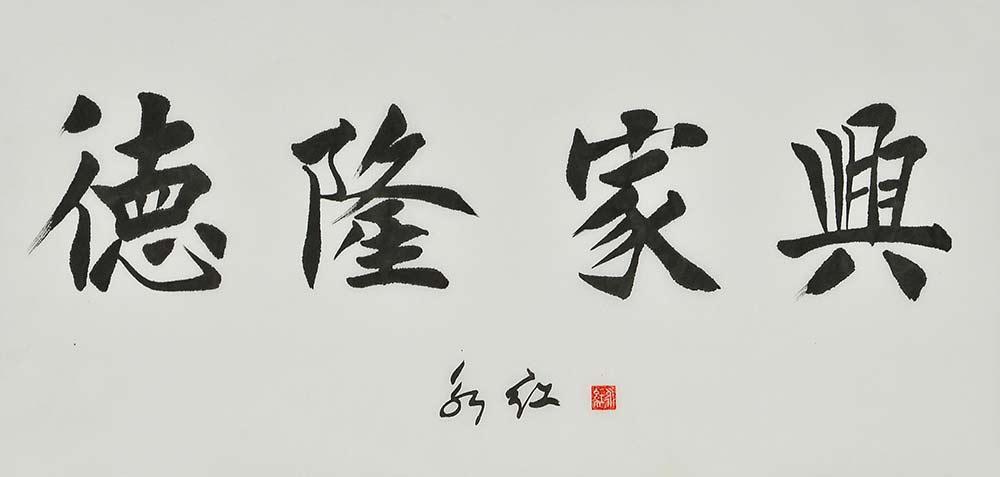 德隆家興
永红